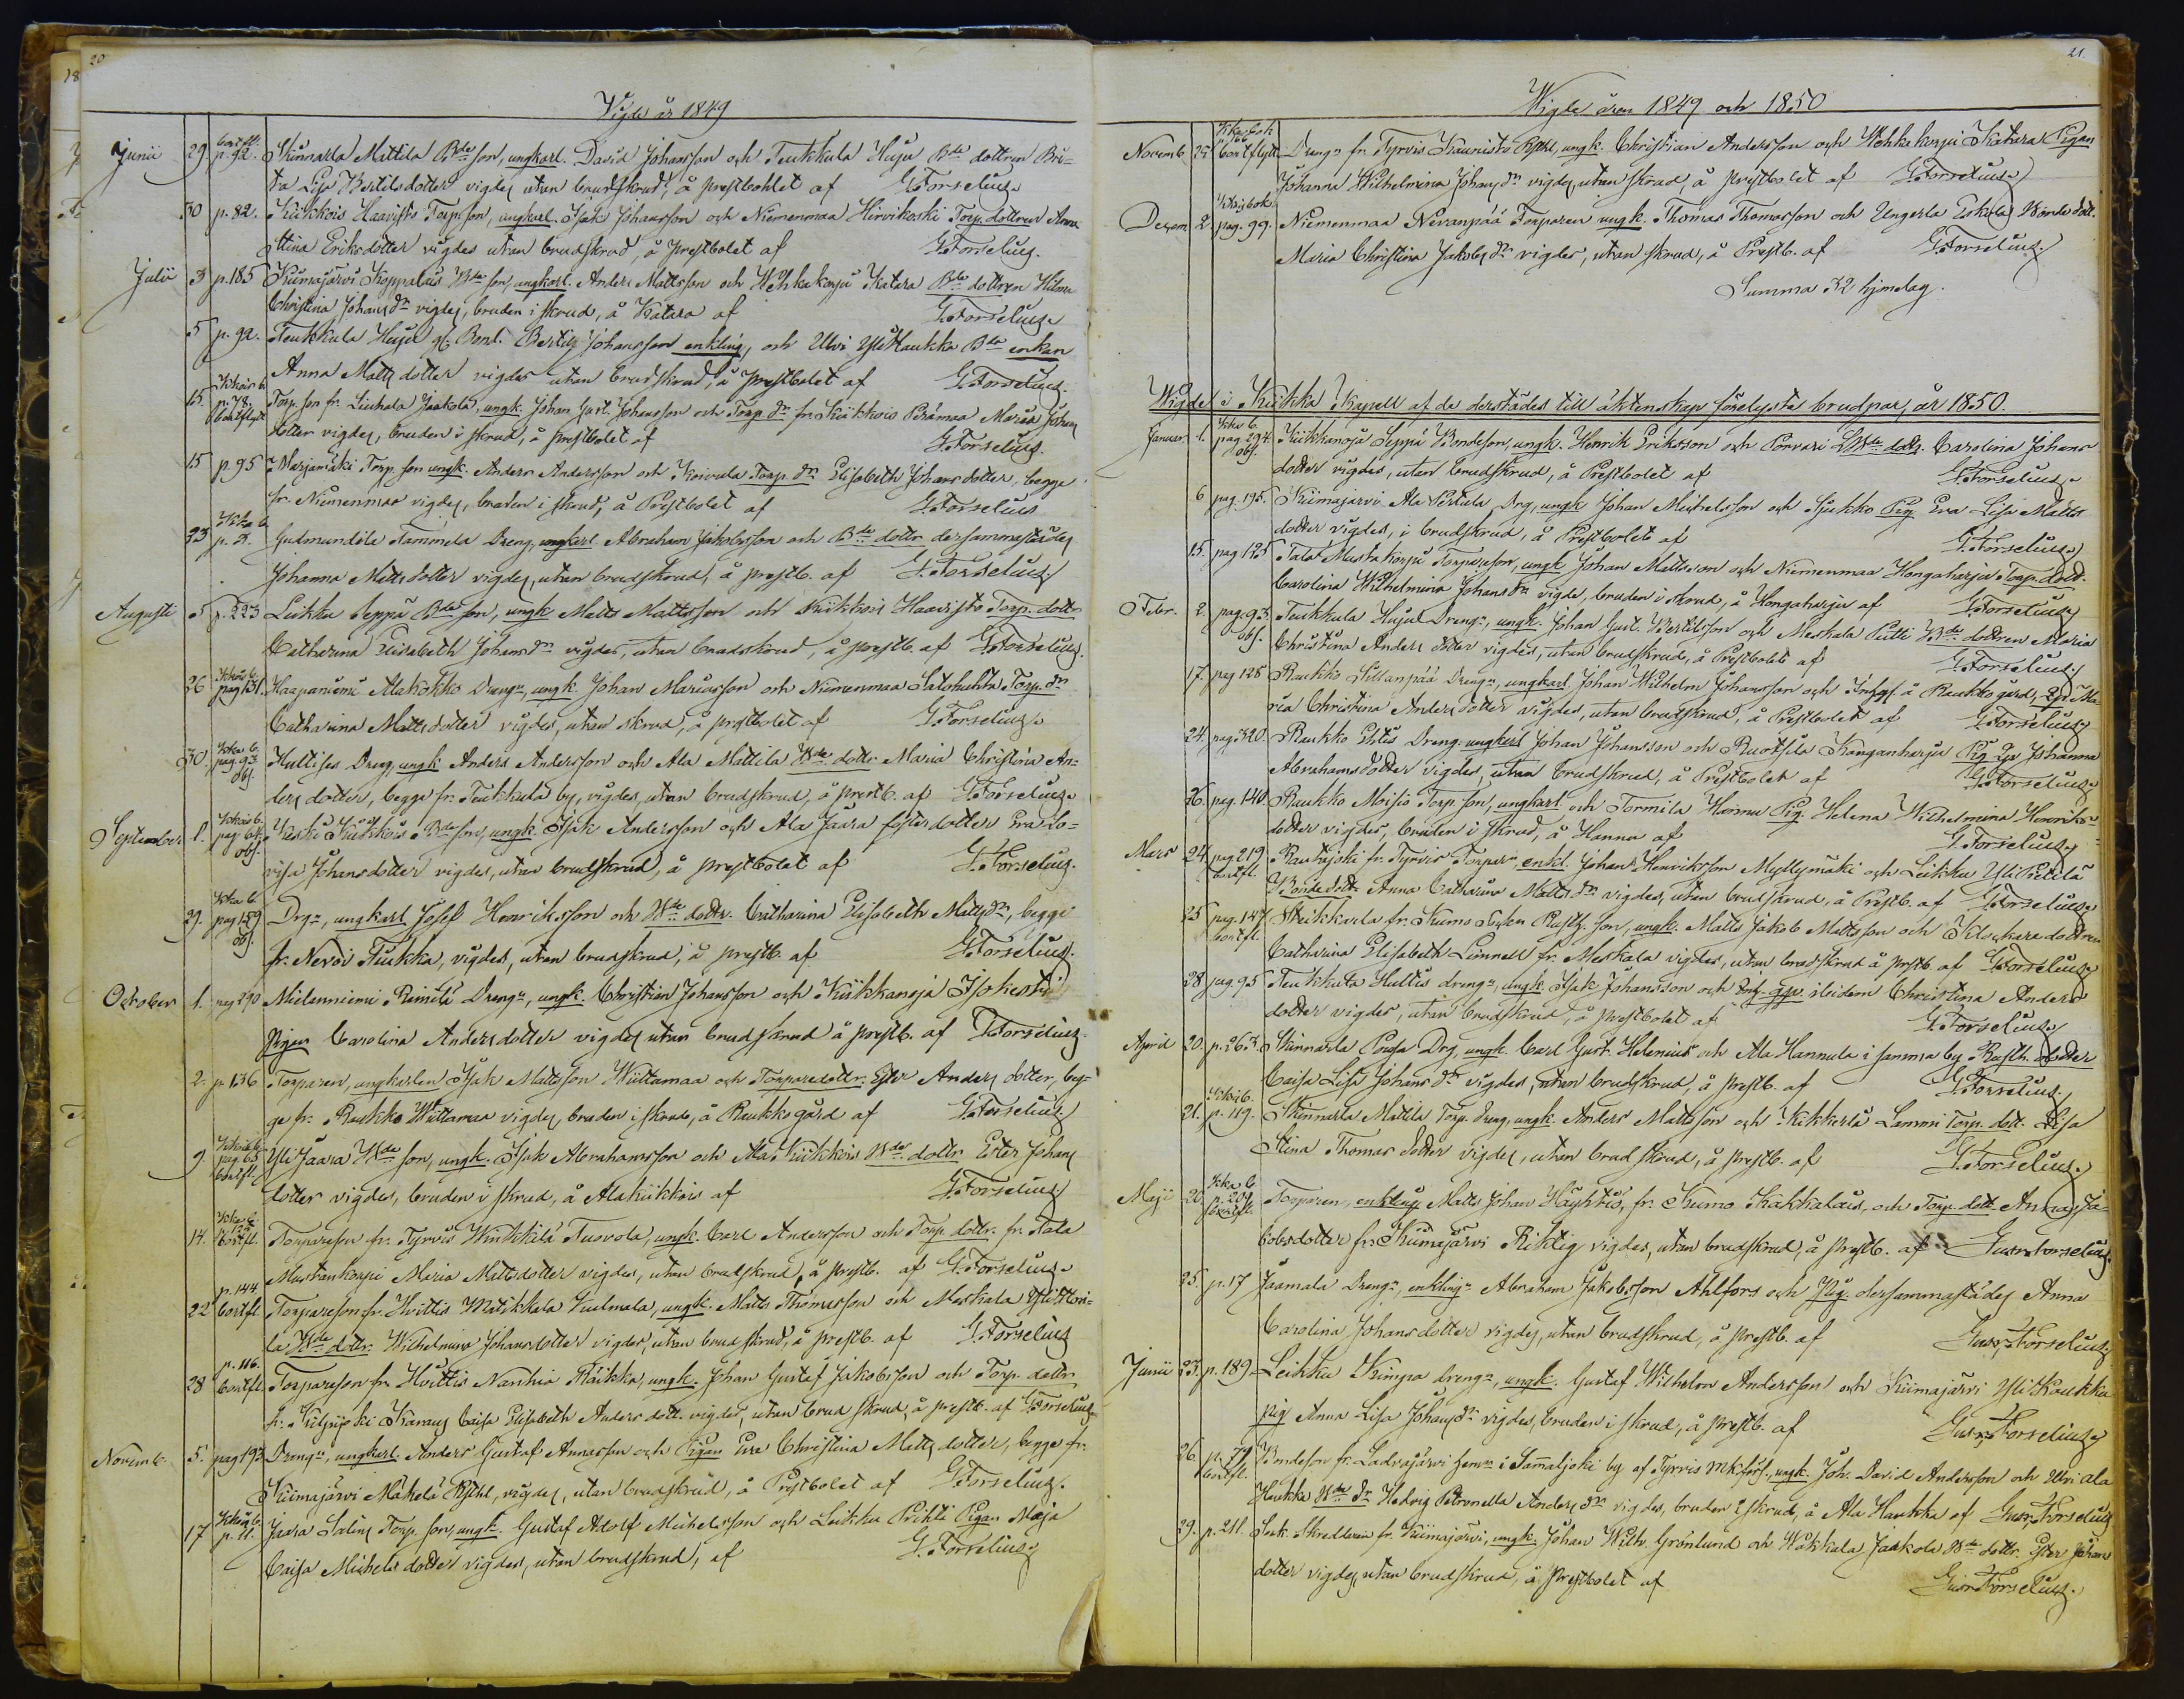 20
Vigde år 1849
Junii 29 bortfl. p. 92. Kinnarla Mattila Bde son, ungkarl. David Johansson och Teukkula Huju Bde dottren Bri-
ta Lisa Bertilsdotter vigdes utan brudskrud, å prestbohlet af G. Forselius
30 p. 82. Kiikkois Haavisto Torp. son, ungkarl. Isak Johansson och Niemenmaa Hirvikoski Torp. dottren Anna
Stina Eriksdotter vigdes utan brudskrud, å prestbolet af G. Forselius.
Julii 3 p. 185 Kiimajärvi Koppalais Bde son, ungkarl. Anders Mattsson och Wehkakorpi Katara Bde dottren Wilma
Christina Johans dr vigdes, bruden i skrud, å Katara af G. Forselius
5 p. 92. Teukkula Huju Bond. Bertils Johansson enkling, och Ulvi Yli Haukka Bde enkan
Anna Matts dotter vigdes utan brudskrud, å prestbolet af G. Forselius.
15. p. 78. bortflytt Torp. son fr. Liuhala Jaakola, ungk. Johan Gust. Johansson och Torp. dr fr. Kiikkois Maria Johans
dotter vigdes, bruden i skrud, å prestbolet af G. Forselius.
15 p. 95 Marjamäki Torp. son ungk. Anders Andersson och Koivula Torp. dr Elisabeth Johansdotter, begge
fr. Niemenmaa vigdes, bruden i skrud, å Prestbolet af G. Forselius
23 Gudmundila Tammela Dreng, ungkarl Abraham Jakobsson och Bde dottr. dersammastädes
Johanna Mattsdotter vigdes, utan brudskrud, å prestb. af G. Forselius
Augusti 5 p. 223 Leikku Seppä Bde son, ungk. Matts Mattsson och Kiikkois Haavisto Torp. dottr
Catharina Elisabeth Johans dr vigdes, utan brudskrud, å prestb. af G. Forselius.
26 pag 131. Haapaniemi Alakokko Drengn, ungk. Johan Mariasson och Niemenmaa Salohuhta Torp. dr
Catharina Mattsdotter vigdes, utan skrud, å prestbolet af G. Forselius
30. pag. 93 obs. Huttises Dreng, ungk. Anders Andersson och Ala Mattila Bde dottr. Maria Christina An-
ders dotter, begge fr. Teukkula by, vigdes, utan brudskrud, å prestb. af G. Forselius
September 1. pag 64. obs. Keski Kiikkois Bde son, ungk. Isak Andersson och Ala Jaara fosterdotter Eva Lo-
visa Johansdotter vigdes, utan brudskrud, å prestbolet af G. Forselius.
29. pag 159 obs. Drgn, ungkarl Josef Henriksson och Bde dottr. Catharina Elisabeth Matts dr, begge
fr. Nevoi Tiukka, vigdes, utan brudskrud, å prestb. af G. Forselius.
October 1. pag 290 Mielenniemi Rimilä Drengn, ungk. Christian Johansson och Kiikkanoja
Pigan Carolina Andersdotter vigdes utan brudskrud å prestb. af G. Forselius.
2. p. 136 Torparen, ungkarlen Isak Mattsson Wiiltamaa och Torparedottr. Ester Anders dotter, beg-
ge fr. Raukko Wiiltamaa vigdes, bruden i skrud, å Raukko gård af G. Forselius
9. pag 65 bortfl. Yli Jaara Bde son, ungk. Isak Abrahamsson och Ala Kiikkois Bde dottr. Ester Johans
dotter vigdes, bruden i skrud, å Alakiikkois af G. Forselius
14. bortfl. Torpareson fr. Tyrvis Winkkilä Tuovola, ungk. Carl Andersson och Torp. dottr. fr. Tala
Mustankorpi Maria Mattsdotter vigdes, utan brudskrud, å prestb. af G. Forselius
22 p. 144 bortfl Torpareson fr. Hvittis Matikkala Kulmala, ungk. Matts Thomasson och Meskala
la Bde dottr. Wilhelmina Johansdotter vigdes, utan brudskrud, å prestb. af G. Forselius
28 p. 116. bortfl. Torpareson fr. Hvittis Nanhia Räikka, ungk. Johan Gustaf Jakobsson och Torp. dottr
fr. Kiljujoki Caisa Elisabeth Anders dott. vigdes, utan brudskrud, å prestb. af G. Forselius
Novemb. 5. pag 193 Drengn, ungkarl. Anders Gustaf Annasson och Pigan Eva Christina Matts dotter, begge fr.
Kiimajärvi Mäkelä Rsthl, vigdes, utan brudskrud, å Prestbolet af G. Forselius.
17 p. 11. Jaara Salins Torp. son, ungk. Gustaf Adolf Michelsson och Leikku Prihti Pigan Maja
Caisa Michels dotter vigdes, utan brudskrud, af G. Forselius
21.
Wigde åren 1849 och 1850
Novemb. 25 bortflytt Drengn fr. Tyrvis Kaunisto Rsthl, ungk. Christian Andersson och Wehkakorpi Katara Pigan
Johanna Wilhelmina Johans dr vigdes, utan skrud, å prestbolet af G. Forselius
Decem. 2 pag. 99. Niemenmaa Nevanpää Torparen ungk. Thomas Thomasson och Ungerla Eskola Bonde dott.
Maria Christina Jakobs dr vigdes, utan skrud, å Prestb. af G. Forselius
Summa 32 hjonelag.
Wigde i Kiikka Kapell af de derstädes till äktenskap förelysta brudpar, år 1850.
Januar. 1. pag. 294. obs. Kiikkanoja Seppä Bondeson, ungk. Henrik Eriksson och Porvari Bde dottr. Carolina Johans
dotter vigdes, utan brudskrud, å Prestbolet af G. Forselius
6 pag. 195. Kiimajärvi Ala Pertula Drg, ungk Johan Michelsson och Sjukko Pig. Eva Lisa Matts
dotter vigdes, i brudskrud, å Prestbolet af G. Forselius
15. pag 125 Tala Mustakorpi Torpareson, ungk Johan Mattsson och Niemenmaa Hongaharju Torp. dott.
Carolina Wilhelmina Johans dr vigde, bruden i skrud, å Hongaharju af G. Forselius
Febr. 2. pag. 93. obs. Teukkula Huju Drengn, ungk. Johan Gust. Bertilsson och Meskala Putti Bde dottren Maria
Christina Anders dotter vigdes, utan brudskrud, å Prestbolet af G. Forselius
17. pag 128 Raukko Sillanpää Drengn, ungkarl Johan Wilhelm Johansson och Inhys. å Raukko gård, Ma
ria Christina Andersdotter vigdes, utan brudskrud, å Prestbolet af G. Forselius
24. pag 320 Raukko Dreng ungkarl Johan Johansson och Ruotsila Kanganharju Pig Johanna
Abrahamsdotter vigdes, utan brudskrud, å Prestbolet af G. Forselius
26. pag. 140 Raukko Moisio Torp. son, ungkarl och Tormila Hannu Pig. Helena Wilhelmina Henriks-
dotter vigdes, bruden i skrud, å Hannu af G. Forselius
Mars 24. pag 219 bortfl. Rautajoki fr. Tyrvis Torpar. enkl. Johan Henriksson Myllymäki och Leikku
Bondedottr. Anna Catharina Matts dr vigdes, utan brudskrud, å Prestb. af G. Forselius
25 pag. 147. bortfl. fr. Kumo Rusth. son, ungk. Matts Jakob Mattsson och Klockaredottren
Catharina Elisabeth Lunnell fr. Meskala vigdes, utan brudskrud å prstb. af G. Forselius
28 pag. 95 Teukkula Huttis drengn, ungk. Isak Johansson och ibidem Christina Anders
dotter vigdes, utan brudskrud, å prestbolet af G. Forselius
April 20. p. 263. Kinnarla Pousa Drg. ungk. Carl Gust. Helenius och Ala Hannula i samma by Rusth. dotter
Caisa Lisa Johans dr vigdes, utan brudskrud, å prestb. af G. Forselius.
21. p. 119. Kinnarla Mattila Torp. dreng, ungk. Anders Mattsson och Kikkerlä Lammi Torp. dott. Lisa
Stina Thomas dotter vigdes, utan brudskrud, å prestb. af G. Forselius
Maji 20. p. 209. Torparen, enkling Matts Johan Häyhtiö, fr. Kumo Kakkalais, och Torp. dott. Anna Ja-
kobsdotter fr. Kiimajärvi Riktig vigdes, utan brudskrud, å prestb. af Gust. Forselius
25 p. 17 Jaamala Drengn, enklingn Abraham Jakobsson Ahlfors och Pig. dersammastädes Anna
Carolina Johansdotter vigdes, utan brudskrud, å prestb. af Gust. Forselius
Junii 23. p. 189. Leikku Kimpa drengn, ungk. Gustaf Wilhelm Andersson och Kiimajärvi Yli Kaukka
pig Anna Lisa Johans dr vigdes, bruden i skrud, å prestb. af Gust. Forselius
26. p. 79 bortfl. Bondeson fr. Ladvajärvi hemn i Sammaljoki by af Tyrvis Mkförs., ungk. Joh. David Andersson och Ulvi Ala
Haukka Bde dr Hedvig Petronella Anders dr vigdes, bruden i skrud, å Ala Haukka af Gust. Forselius
29. p. 211. Sock. Skreddaren fr. Kiimajärvi, ungk. Johan Wilh. Grönlund och Wakkala Jaakola Bde dottr. Ester Johans
dotter vigdes, utan brudskrud, å prestbolet af Gust. Forselius.